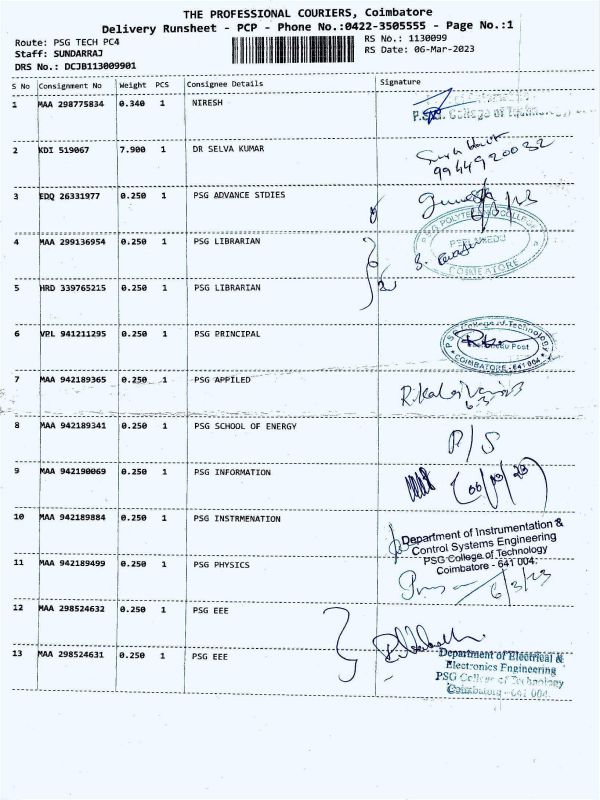 THE PROFESSIONAL COURIERS, Coimbatore
Delivery Runsheet - PCP - Phone No.:0422-3505555 - Page No.:1
Route: PSG TECH PC4
RS No.: 1130099
Staff: SUNDARRAJ
RS Date: 06-Mar-2023
DRS No.: DCJB113009901
S No Consignment No Weight PCS Consignee Details Signature
1 MAA 298775834 0.340 1 NIRESH
P.S.G. College of Technology
2 KDI 519067 7.900 1 DR SELVA KUMAR
9944920032
3 EDQ 26331977 0.250 1 PSG ADVANCE STDIES
6/3/23
PSG POLYTECHNIC COLLEGE
4 MAA 299136954 0.250 1 PSG LIBRARIAN
PEELAMEDU
COIMBATORE
5 HRD 339765215 0.250 1 PSG LIBRARIAN
PSG College of Technology
6 VPL 941211295 0.250 1 PSG PRINCIPAL
Post
COIMBATORE - 641 004
7 MAA 942189365 0.250 1 PSG APPILED
6-3
8 MAA 942189341 0.250 1 PSG SCHOOL OF ENERGY
P/S
9 MAA 942190069 0.250 1 PSG INFORMATION
(06/03/23)
10 MAA 942189884 0.250 1 PSG INSTRMENATION
Department of Instrumentation &
Control Systems Engineering
PSG College of Technology
Coimbatore - 641 004.
11 MAA 942189499 0.250 1 PSG PHYSICS
6/3/23
12 MAA 298524632 0.250 1 PSG EEE
13 MAA 298524631 0.250 1 PSG EEE
Department of Electrical &
Electronics Engineering
PSG College of Technology
Coimbatore - 641 004.